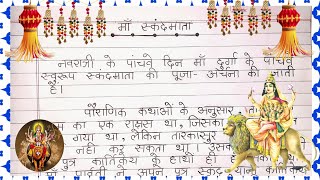 माँ स्कंदमाता
नवरात्री के पांचवे दिन माँ दुर्गा के पांचवे
स्वरूप स्कंदमाता की पूजा-अर्चना की जाती
है।
पौराणिक कथाओं के अनुसार,
का एक राक्षस था, जिसका
गया था, लेकिन तारकासुर
नहीं कर सकता था। उसक
पुत्र कार्तिकेय के हाथों ही
ने अपने पुत्र स्कंद यानी कार्तिकेय